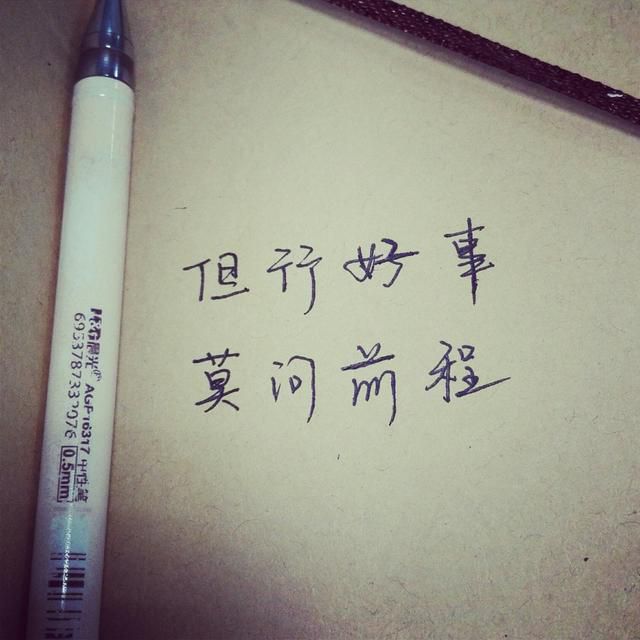 但行好事
莫问前程
晨光 AGP16317 中性笔
0.5mm